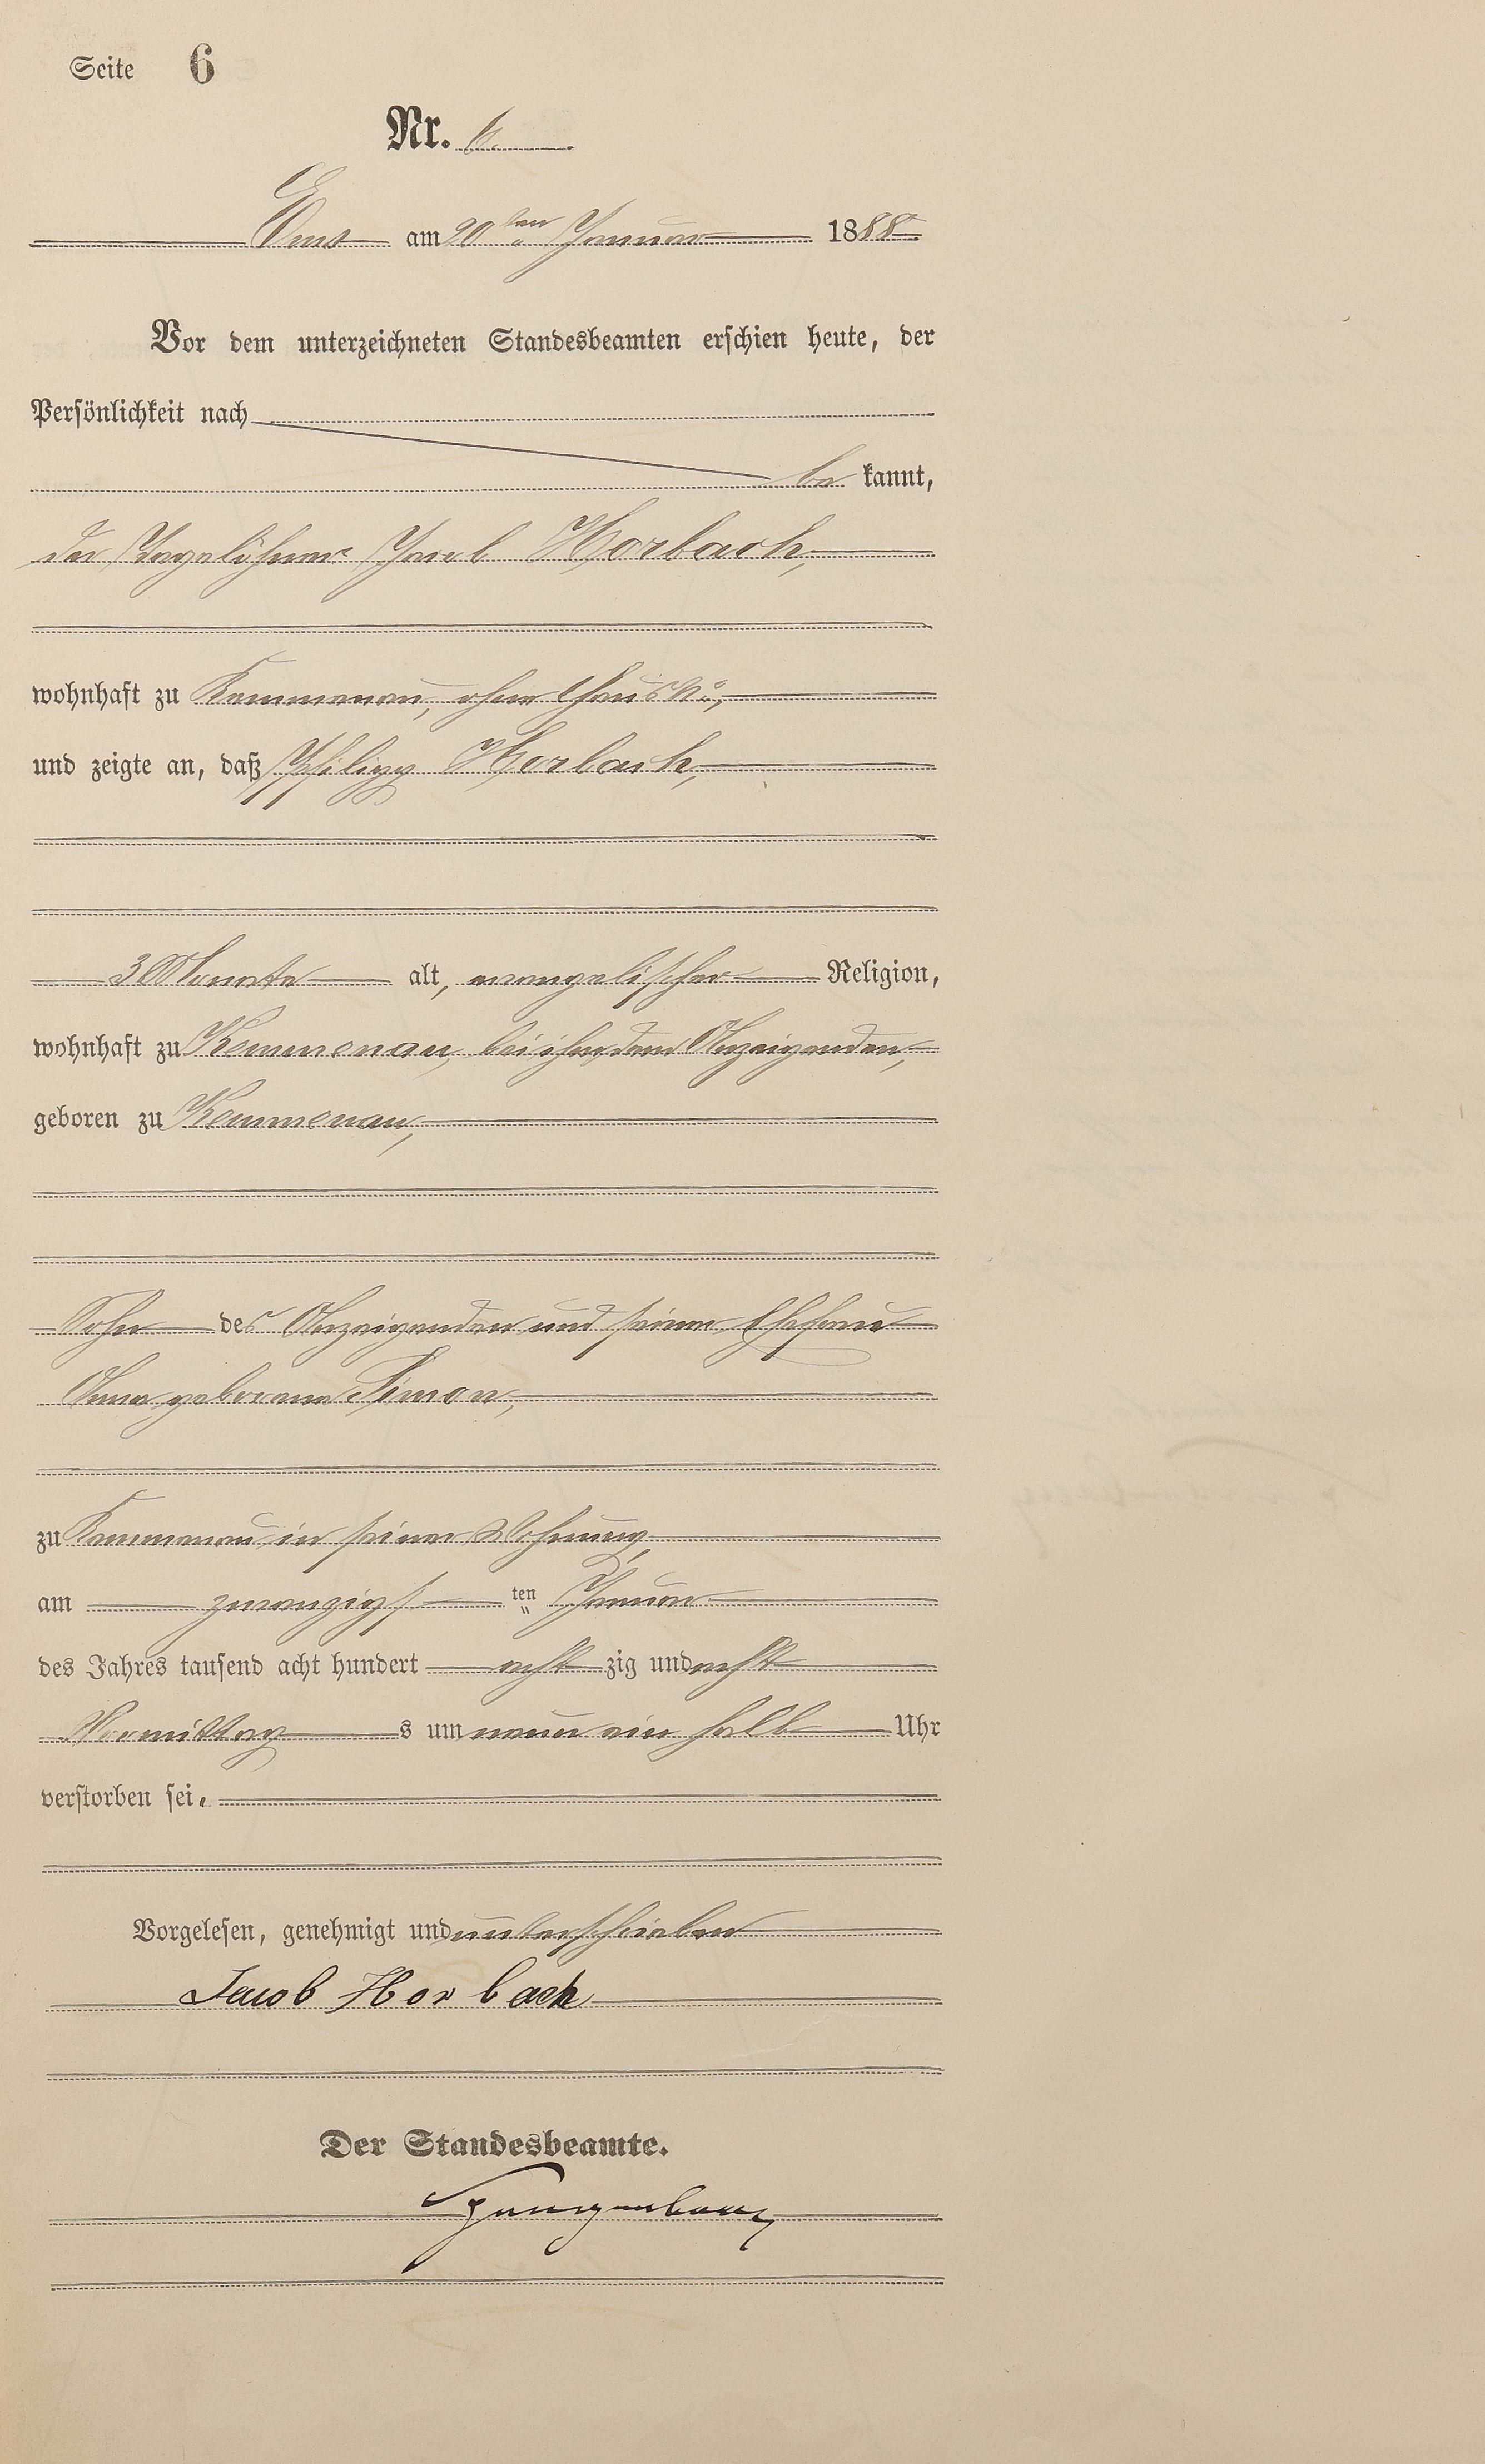 Seite 6
Nr. 6.
Ems am 20ten Januar 1888
Vor dem unterzeichneten Standesbeamten erschien heute, der
Persönlichkeit nach
be kannt,
der Tagelöhner Jacob Horbach,
wohnhaft zu Kemmenau, ohne Haus No,
und zeigte an, daß Philipp Horbach,
3 Monate alt, evangelischer Religion,
wohnhaft zu Kemmenau, bei ihm, dem Anzeigenden,
geboren zu Kemmenau,
Sohn des Anzeigenden und seiner Ehefrau
Anna geborene Simon,
zu Kemmenau in seiner Wohnung,
am zwanzigsten Januar
des Jahres tausend acht hundert acht zig und acht
Vormittag s um neun ein halb Uhr
verstorben sei.
Vorgelesen, genehmigt und unterschrieben
Jacob Horbach
Der Standesbeamte.